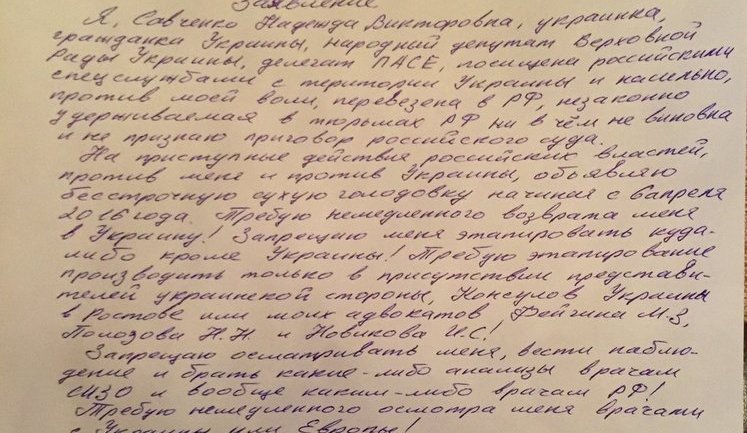 Заявление
Я, Савченко Надежда Викторовна, украинка,
гражданка Украины, народный депутат Верховной
Рады Украины, делегат ПАСЕ, похищена российскими
спецслужбами с територии Украины и насильно,
против моей воли, перевезена в РФ, незаконно
удерживаемая в тюрьмах РФ ни в чём не виновна
и не признаю приговор российского суда.
На приступные действия российских властей,
против меня и против Украины, объявляю
бесстрочную сухую голодовку начиная с 6 апреля
2016 года. Требую немедленного возврата меня
в Украину! Запрещаю меня этапировать куда-
либо кроме Украины! Требую этапирование
производить только в присутствии представи-
телей украинской стороны, Консулов Украины
в Ростове или моих адвокатов Фейгина М.З,
Полозова Н.Н. и Новикова И.С!
Запрещаю осматривать меня, вести наблю-
дение и брать какие-либо анализы врачам
СИЗО и вообще каким-либо врачам РФ!
Требую немедленного осмотра меня врачами
с Украины или Европы!